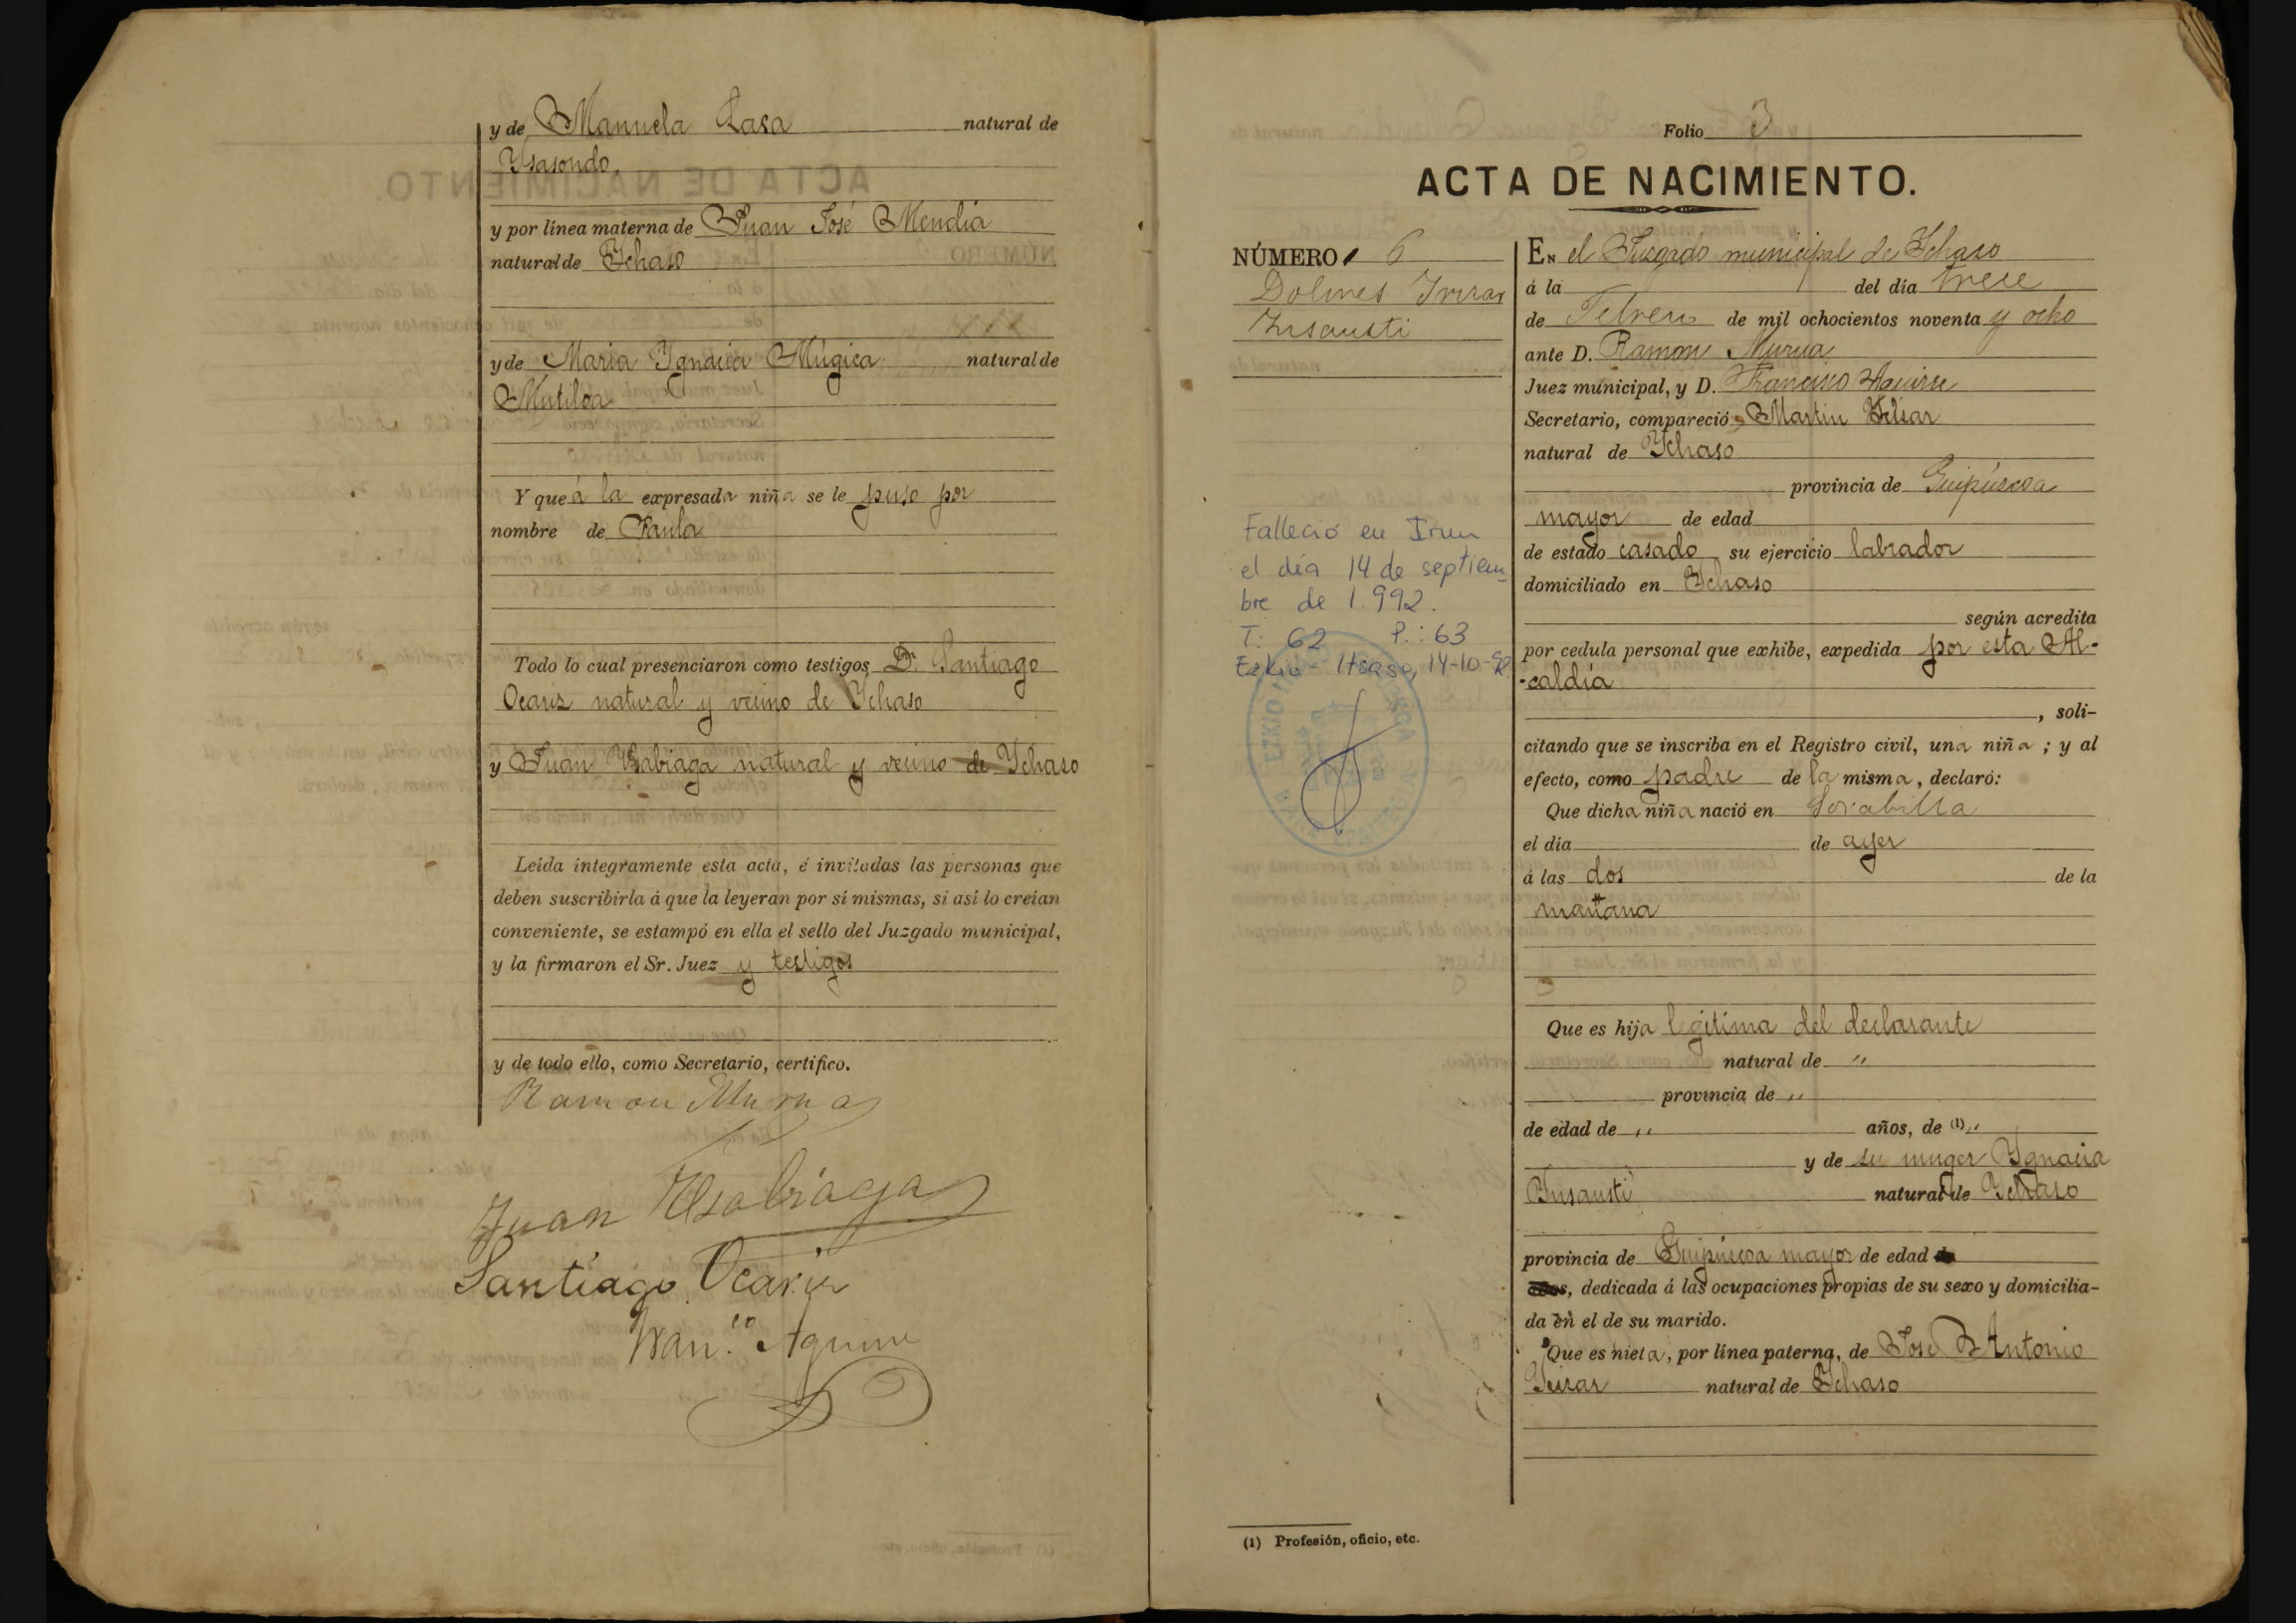 y de Manuela Lasa natural de
Ysasondo.
y por línea materna de Juan José Mendia
natural de Ychaso
y de Maria Ygnacia Múgica natural de
Mutiloa
Y que á la expresada niña se le puso por
nombre de Paula
Todo lo cual presenciaron como testigos D. Santiago
Ocariz natural y vecino de Ychaso
y Juan Usabiaga natural y vecino de Ychaso
Leída íntegramente esta acta, é invitadas las personas que
deben suscribirla á que la leyeran por sí mismas, si así lo creían
conveniente, se estampó en ella el sello del Juzgado municipal,
y la firmaron el Sr. Juez y testigos
y de todo ello, como Secretario, certifico.
Ramon Murua
Juan Usabiaga
Santiago Ocariz
Fran.co Aguirre
Folio 3
ACTA DE NACIMIENTO.
NÚMERO 6
Dolores Irizar
Insausti
Falleció en Irun
el día 14 de septiem
bre de 1.992.
T: 62 P.: 63
Ezkio-Itsaso, 14-10-92
EN el Juzgado municipal de Ychaso
á la del día trece
de Febrero de mil ochocientos noventa y ocho
ante D. Ramon Murua
Juez municipal, y D. Francisco Aguirre
Secretario, compareció Martin Irizar
natural de Ychaso
provincia de Guipúzcoa
mayor de edad
de estado casado su ejercicio labrador
domiciliado en Ychaso
según acredita
por cedula personal que exhibe, expedida por esta Al-
-caldía
, soli-
citando que se inscriba en el Registro civil, una niña; y al
efecto, como padre de la misma, declaró:
Que dicha niña nació en Sorabilla
el día de ayer
á las dos de la
mañana
Que es hija legítima del declarante
natural de "
provincia de "
de edad de " años, de (1) "
y de su muger Ygnacia
Insausti natural de Ychaso
provincia de Guipúzcoa mayor de edad
, dedicada á las ocupaciones propias de su sexo y domicilia-
da en el de su marido.
Que es nieta, por línea paterna, de José Antonio
Irizar natural de Ychaso
(1) Profesión, oficio, etc.